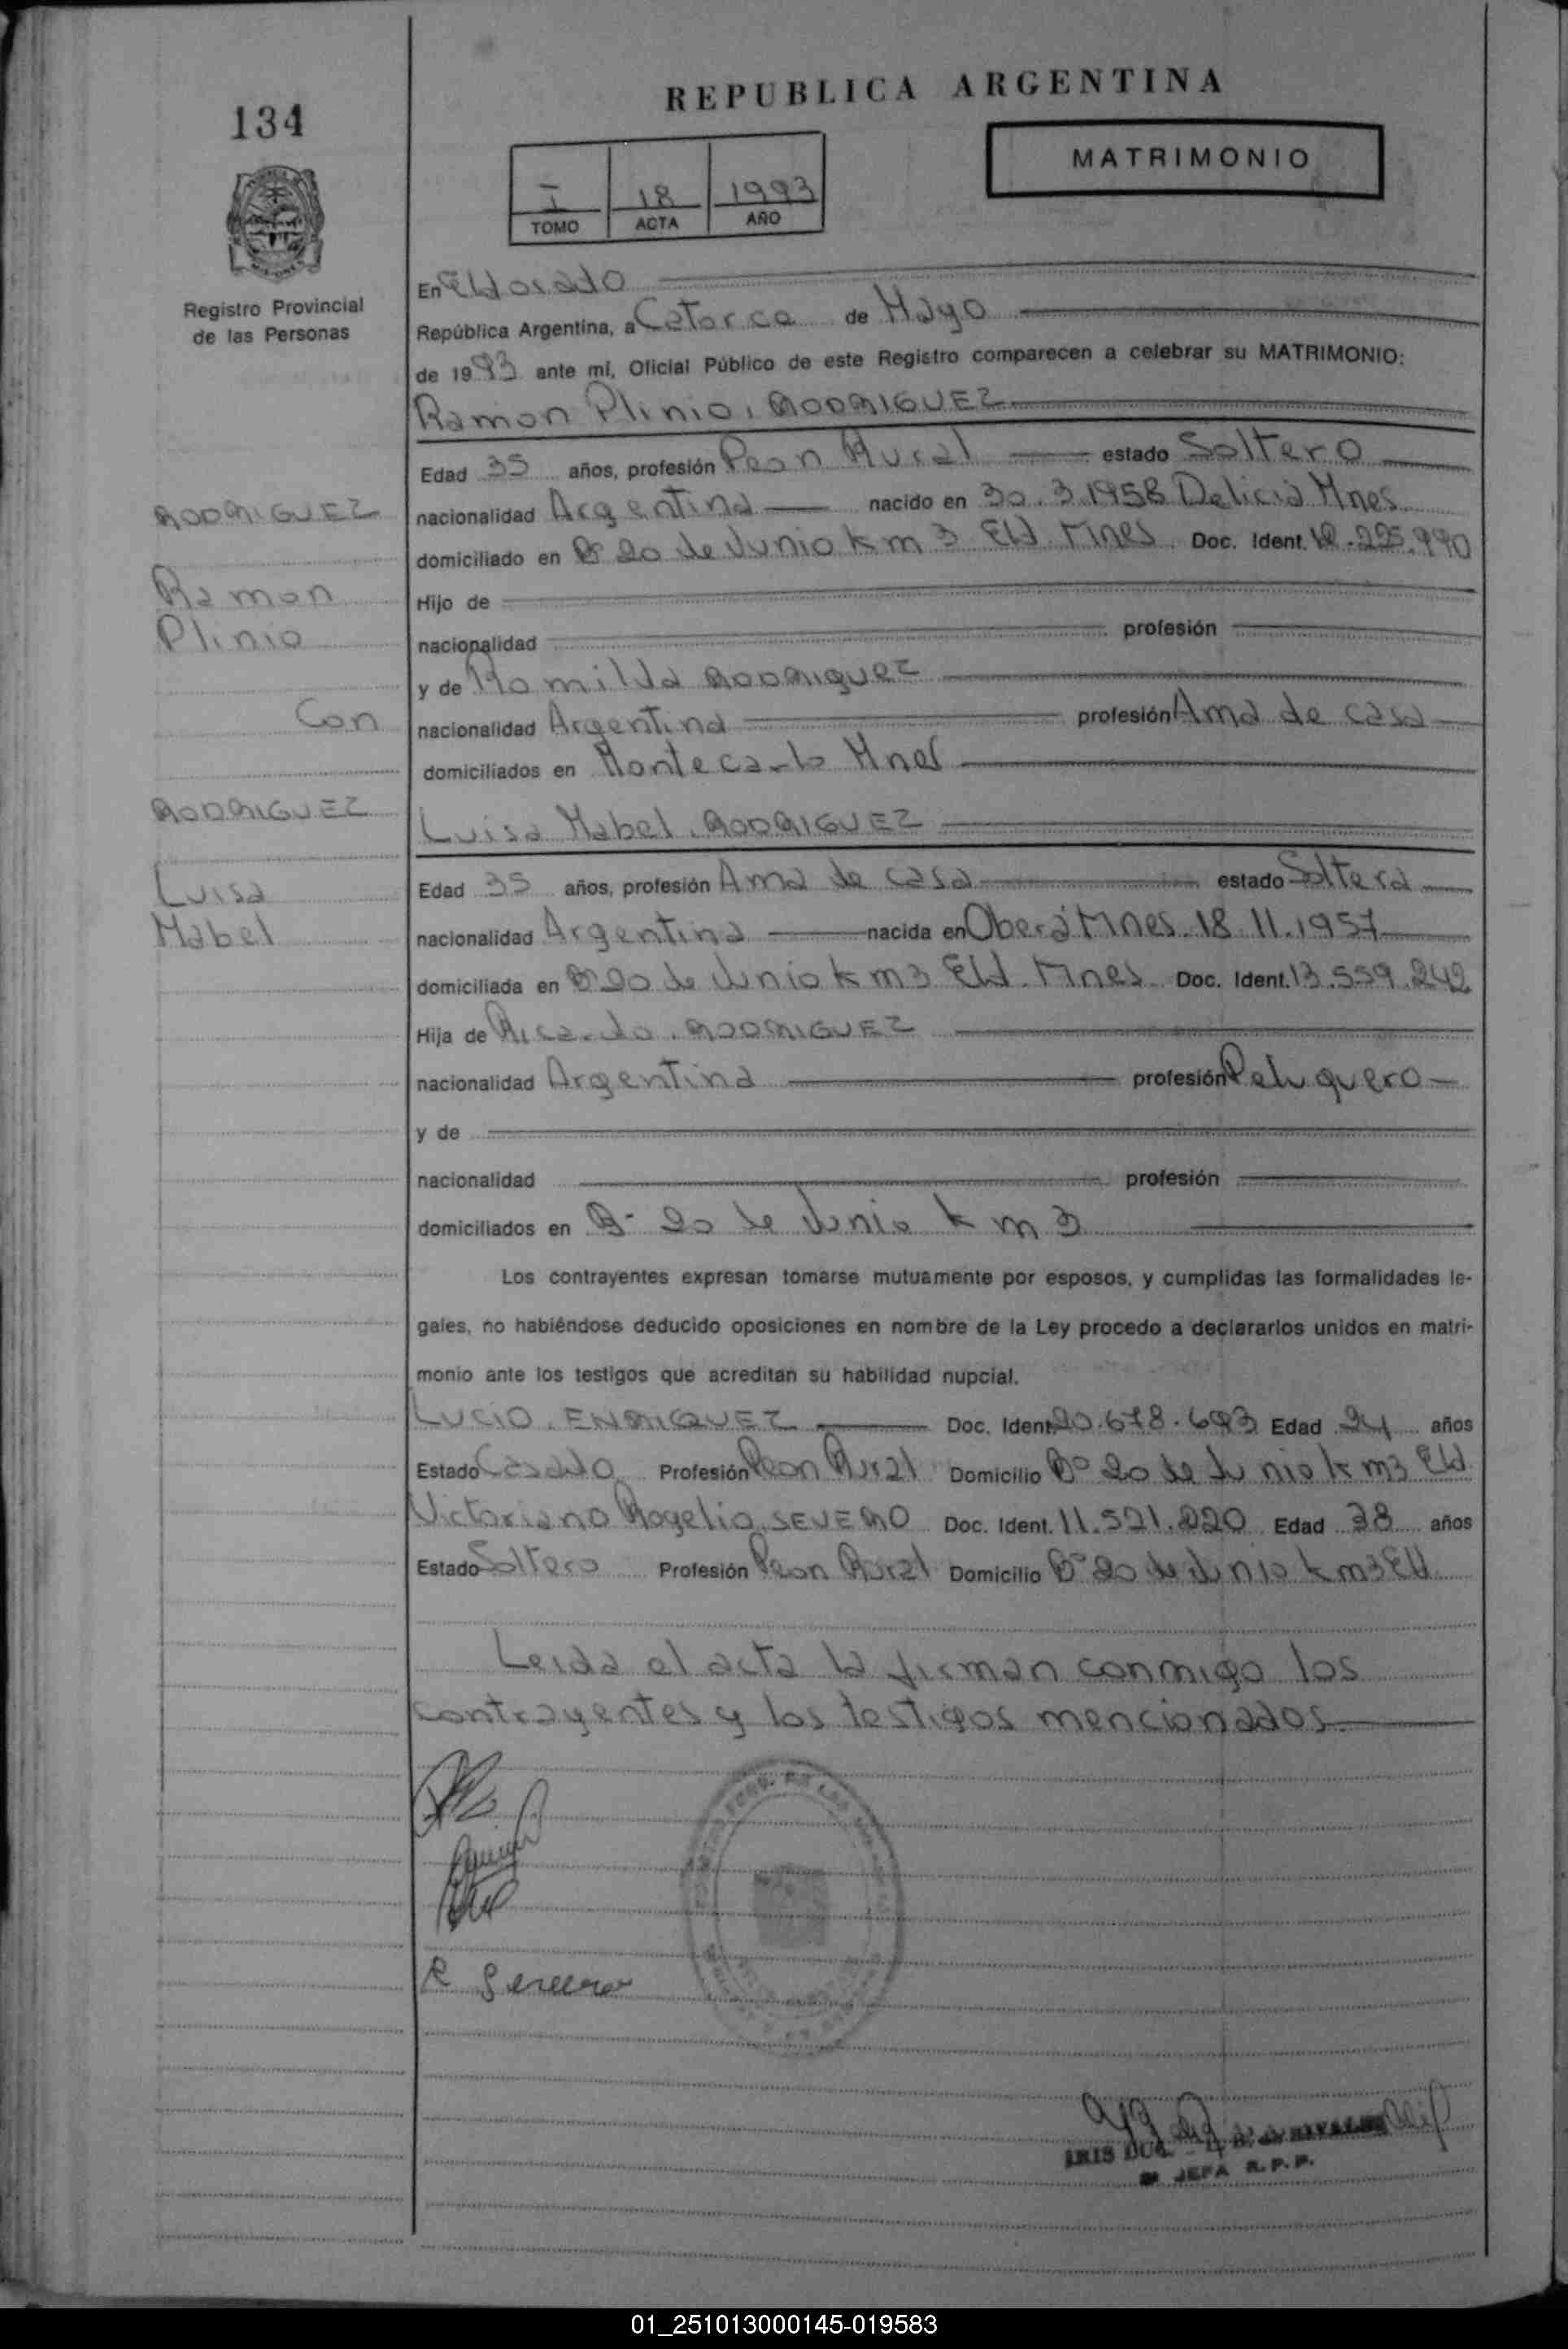 134
REPUBLICA ARGENTINA
MATRIMONIO
I 18 1993
TOMO ACTA AÑO
Registro Provincial
de las Personas
En Eldorado
República Argentina, a Catorce de Mayo
de 1993 ante mí, Oficial Público de este Registro comparecen a celebrar su MATRIMONIO:
Ramon Plinio. RODRIGUEZ
Edad 35 años, profesión Peon Rural estado Soltero
RODRIGUEZ
nacionalidad Argentina nacido en 30.3.1958 Delicia Mnes
domiciliado en Bº 20 de Junio km 3 Eld. Mnes Doc. Ident. 12.225.990
Ramon
Hijo de
Plinio
nacionalidad profesión
y de Romilda RODRIGUEZ
Con
nacionalidad Argentina profesión Ama de casa
domiciliados en Montecarlo Mnes
RODRIGUEZ
Luisa Mabel. RODRIGUEZ
Luisa
Edad 35 años, profesión Ama de casa estado Soltera
Mabel
nacionalidad Argentina nacida en Oberá Mnes. 18.11.1957
domiciliada en Bº 20 de Junio km 3 Eld. Mnes Doc. Ident. 13.559.242
Hija de Ricardo. RODRIGUEZ
nacionalidad Argentina profesión Peluquero
y de
nacionalidad profesión
domiciliados en Bº 20 de Junio km 3
Los contrayentes expresan tomarse mutuamente por esposos, y cumplidas las formalidades le-
gales, no habiéndose deducido oposiciones en nombre de la Ley procedo a declararlos unidos en matri-
monio ante los testigos que acreditan su habilidad nupcial.
LUCIO. ENRIQUEZ Doc. Ident. 20.678.693 Edad 24 años
Estado Casado Profesión Peon Rural Domicilio Bº 20 de Junio km 3 Eld.
Victoriano Rogelio. SEVERO Doc. Ident. 11.521.220 Edad 38 años
Estado Soltero Profesión Peon Rural Domicilio Bº 20 de Junio km 3 Eld
Leida el acta la firman conmigo los
contrayentes y los testigos mencionados.
R Severo
IRIS
JEFA R.P.P.
01_251013000145-019583